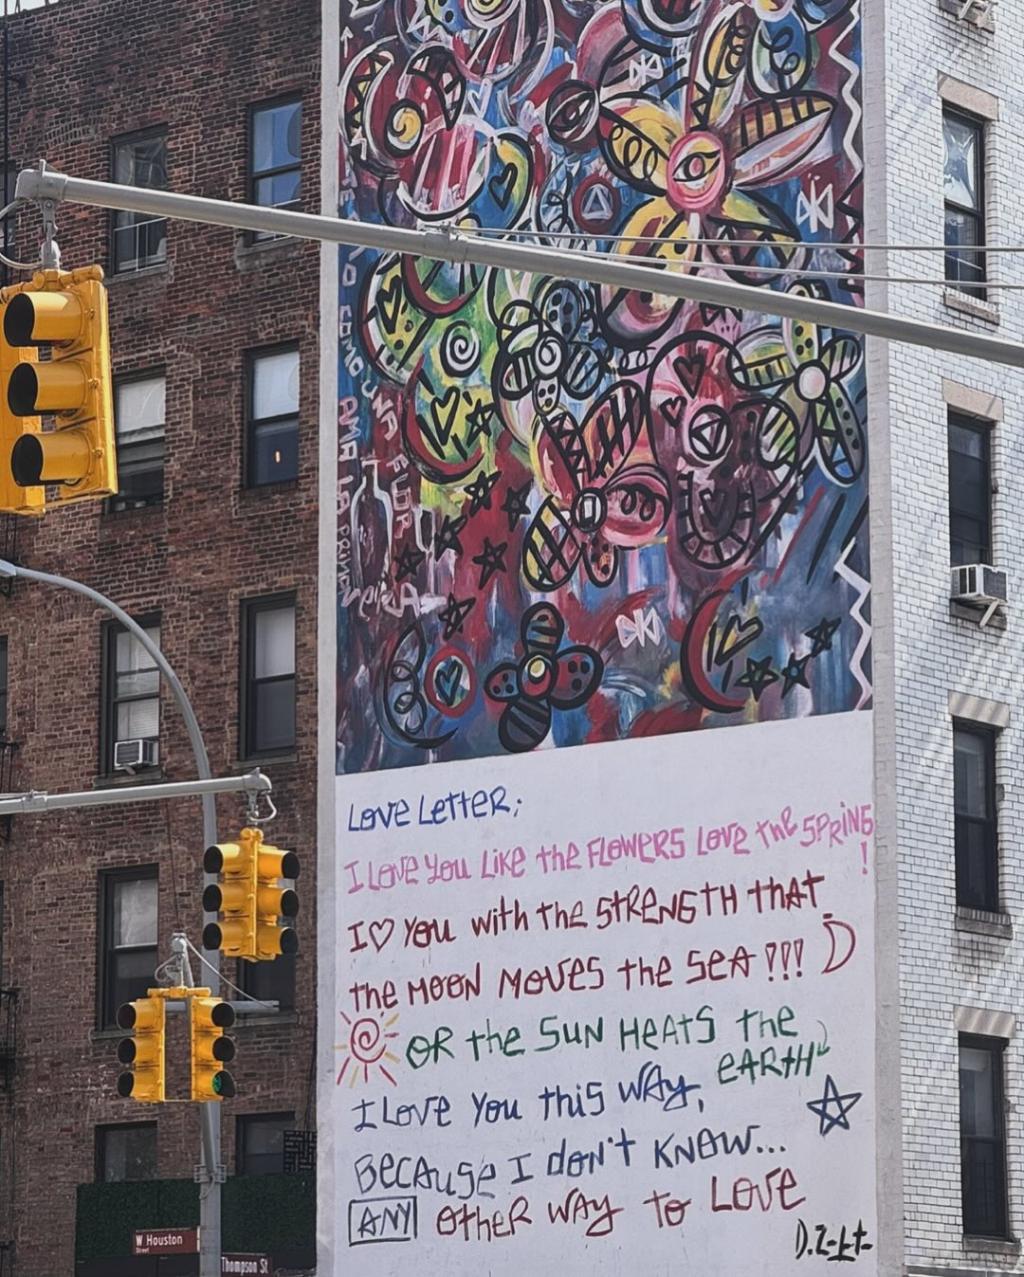 TE AMO COMO UNA FLOR
AMA LA PRIMAVERA
LOVE LETTER;
I LOVE YOU LIKE the FLOWERS LOVE the SPRING!
I ♡ YOU with the STRENGTH that
the MOON MOVES the SEA!!!
OR the SUN HEATS the
EARTH
I LOVE YOU this WAY,
BECAUSE I don't KNOW...
ANY OTHER WAY to LOVE
W Houston Street
Thompson St